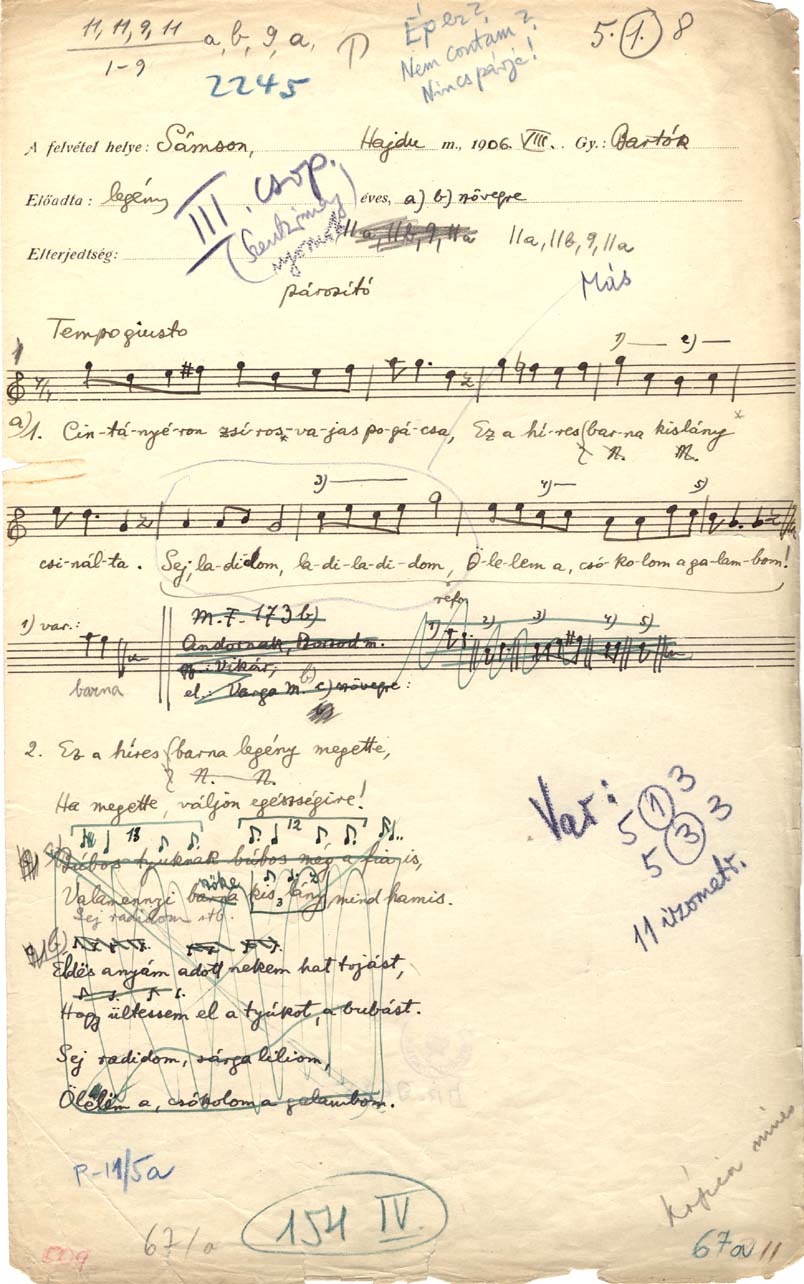 11, 11, 9, 11 a, b, 9, a,
1-9
2245
Ép ez?
Nem contam?
Nincs párja!
5. 1. 8
A felvétel helye: Sámson, Hajdu m., 1906. VIII. Gy.: Bartók
Előadta: legény éves, a) b) növegre
III. csop.
Elterjedtség: 11a, 11b, 9, 11a 11a, 11b, 9, 11a
párosító
Más
Tempo giusto
1) 2)
a) 1. Cin-tá-nyé-ron zsí-ros-va-jas po-gá-csa, Ez a hí-res barna kislány
N. N.
3) 4) 5)
csi-nál-ta. Sej, la-didom, la-di-la-di-dom, Ö-le-lem a, csó-ko-lom a ga-lam-bom!
1) var.:
barna
M. F. 173 b)
Andornak, Borsod m.
gy.: Vikár;
el.: Varga M. c) növegre:
refr.
1) 2) 3) 4) 5)
2. Ez a híres barna legény megette,
N. N.
Ha megette, váljon egészségire!
18 12
Búbos tyuknak búbos még a fia is,
Valamennyi barna kis lány mind hamis.
szőke
3
Sej radidom stb.
Édës anyám adott nekem hat tojást,
Hogy ültessem el a tyúkot, a bubást.
Sej radidom, sárga liliom,
Ölelëm a, csókolom a galambom.
Var:
5 1 3
5 3 3
11 izometr.
P-11/5a
67/a
154 IV.
Kópia nincs
67a 11